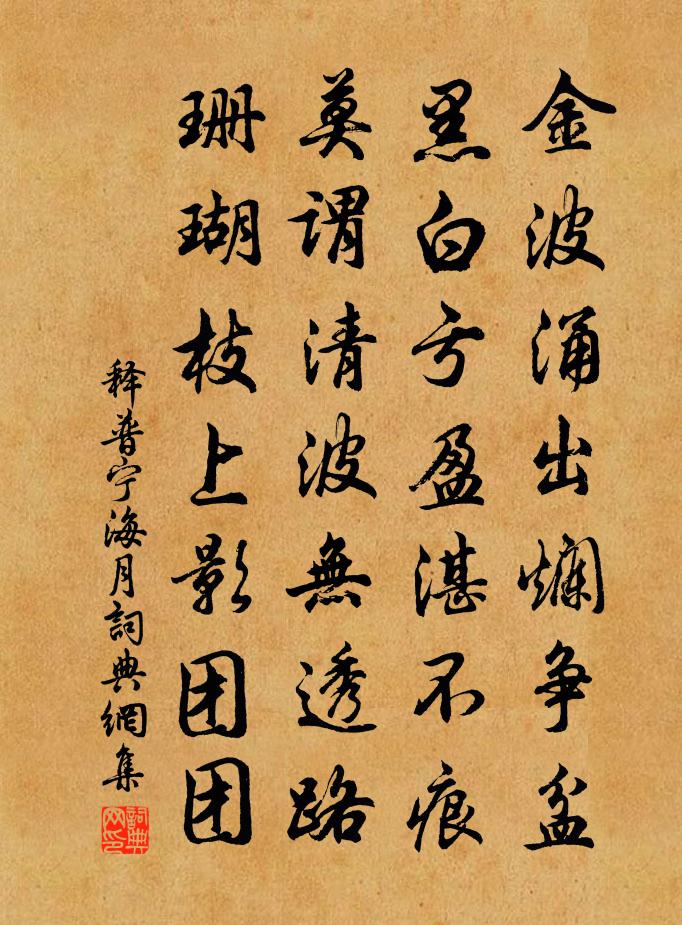 金波涌出爛争盆
黑白亏盈湛不痕
莫謂清波無透路
珊瑚枝上影团团
释普宁海月詞典網集
詞典网印